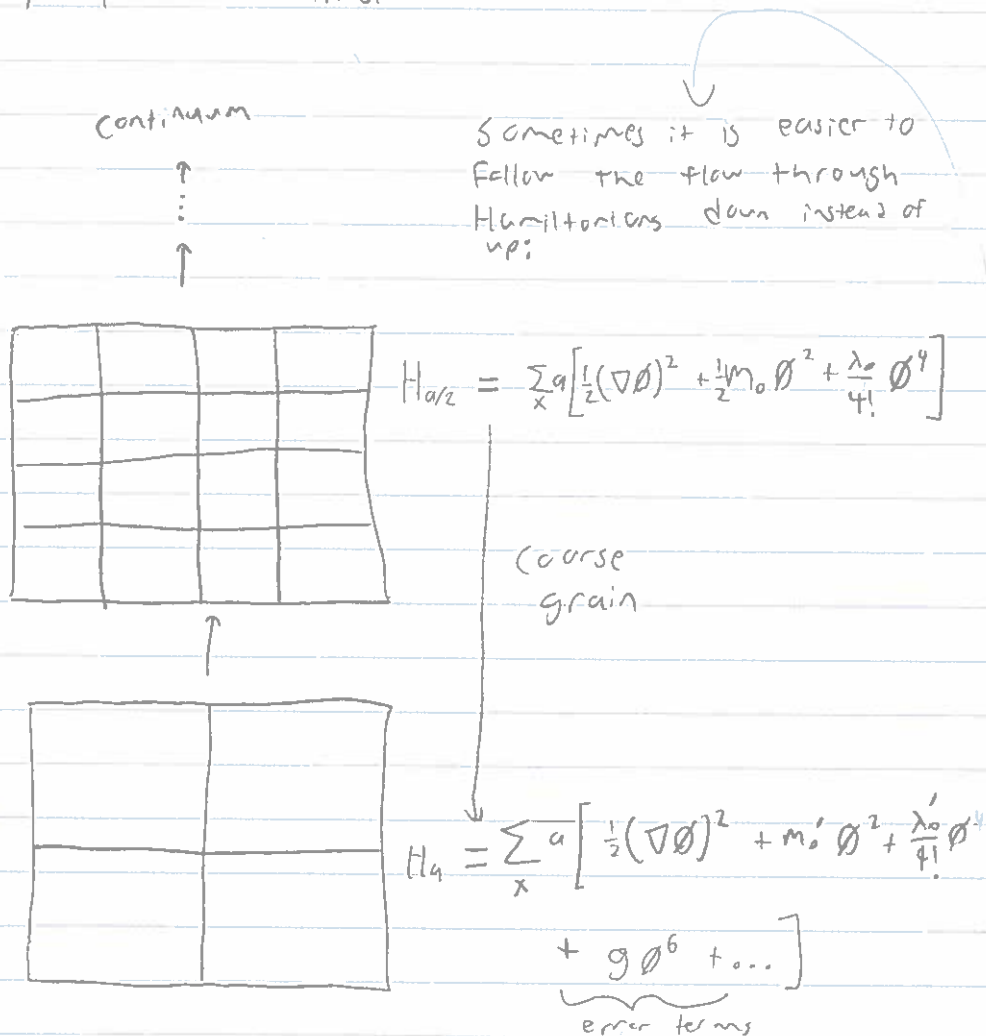 continuum
Sometimes it is easier to
follow the flow through
Hamiltonians down instead of
up:
H_{a/2} = Σ_x a[½(∇Ø)² + ½m₀ Ø² + λ₀/4! Ø⁴]
coarse
grain
H_a = Σ_x a[½(∇Ø)² + m₀′ Ø² + λ₀′/4! Ø⁴
+ g Ø⁶ + ...]
error terms